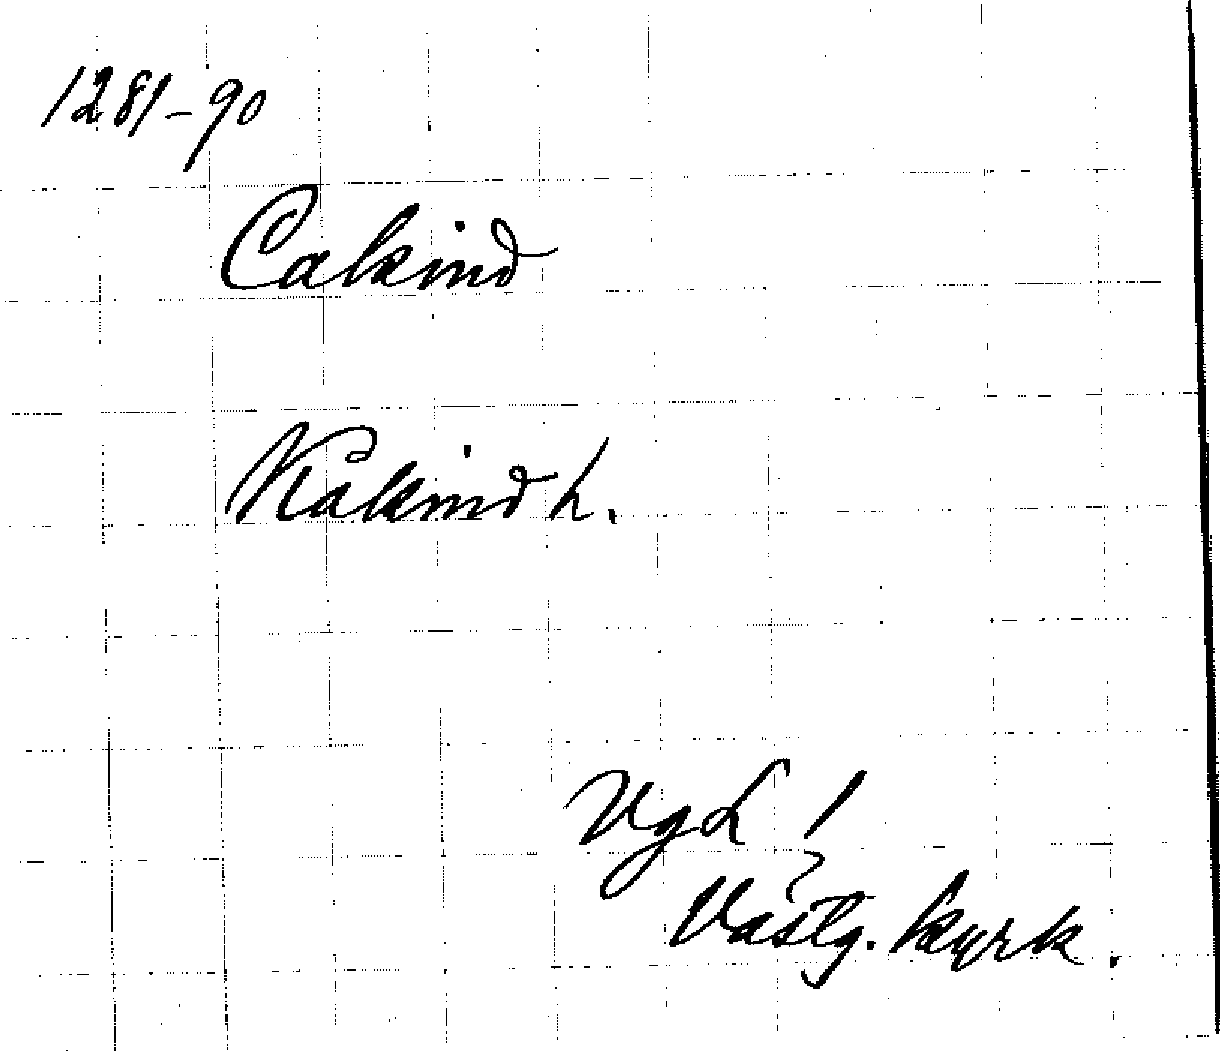 1281-90
Cakind
Kåkind h.
VgL 1
Västg. kyrk.